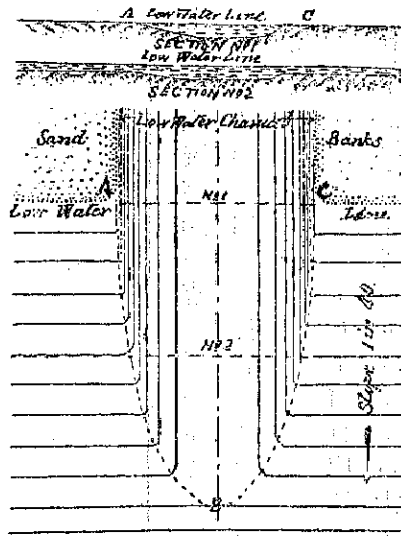 A Low Water Line. C
SECTION Nº1
Low Water Line
SECTION Nº2
Low Water Channel
Sand Banks
A C
Nº1
Low Water Line
Nº2
Slope 1 in 60
B